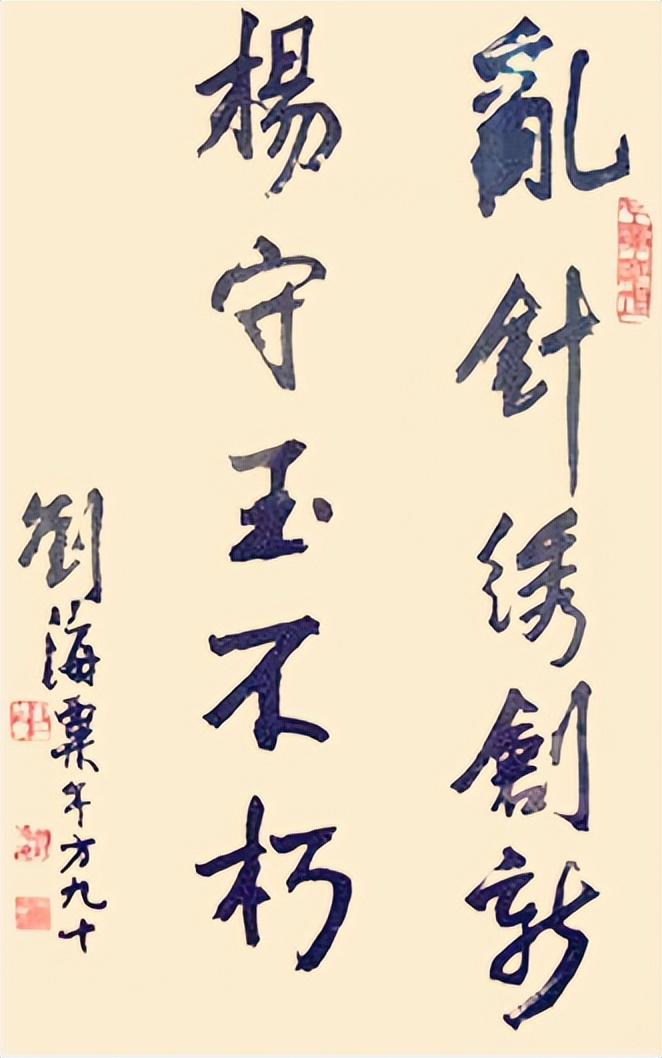 亂針绣創新
楊守玉不朽
劉海粟年方九十